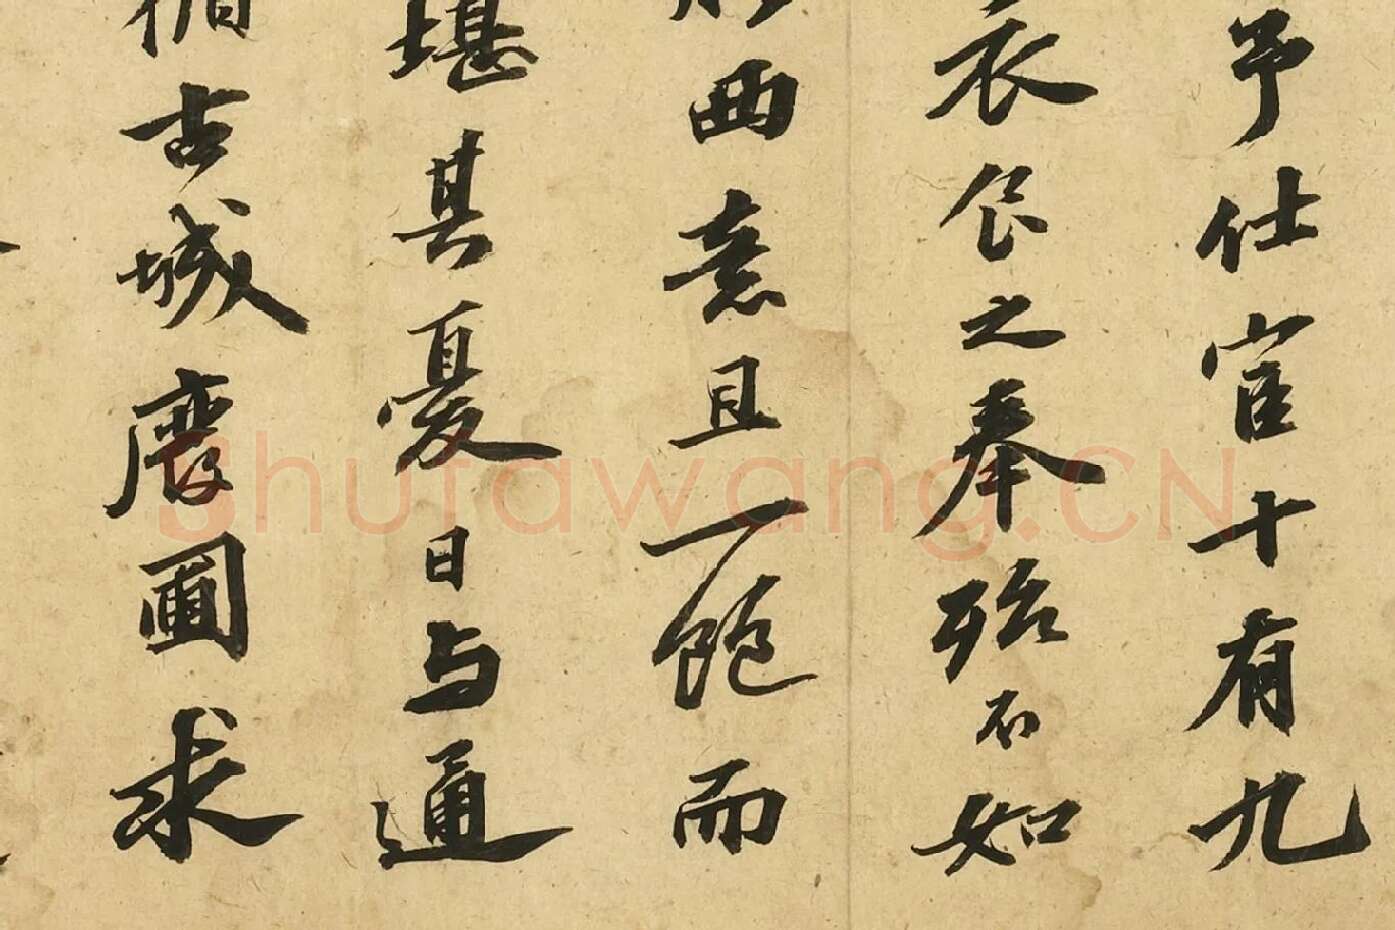 予仕宦十有九
衣食之奉殆不如
西意且一飽而
堪其憂日与通
循古城廢圃求
Shufawang.CN